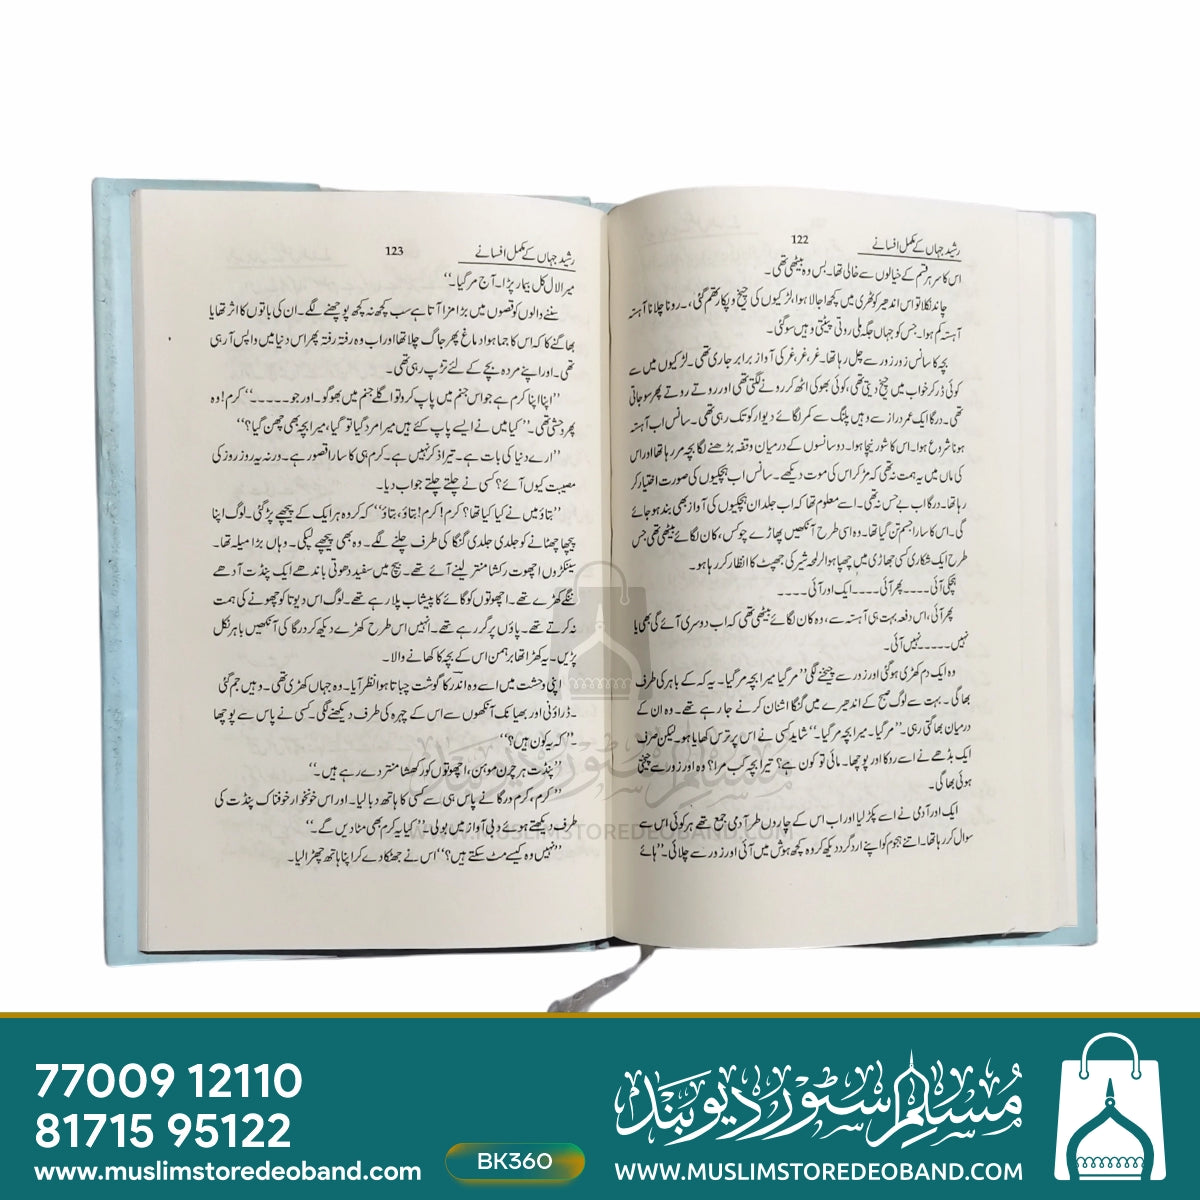 رشید جہاں کے مکمل افسانے
122
اس کا سر ہر قسم کے خیالوں سے خالی تھا۔ بس وہ بیٹھی تھی۔
چاند نکلا تو اس اندھیر کوٹھری میں کچھ اجالا ہوا، لڑکیوں کی چیخ و پکار تھم گئی، ۔رونا چلانا آہستہ
آہستہ کم ہوا۔ جس کو جہاں جگہ ملی روتی پیٹتی وہیں سو گئی۔
بچہ کا سانس زور زور سے چل رہا تھا۔ غر، غر، غر کی آواز برابر جاری تھی۔ لڑکیوں میں سے
کوئی ڈر کر خواب میں چیخ دیتی تھی، کوئی بھوکی اٹھ کر رونے لگتی تھی اور روتے روتے پھر سو جاتی
تھی۔ درگا ایک عمر دراز سے وہیں پلنگ سے کمر لگائے دیوار کو تک رہی تھی۔ سانس اب آہستہ
ہونا شروع ہوا۔ اس کا شور نیچا ہوا۔ دو سانسوں کے درمیان وقفہ بڑھنے لگا بچہ مر رہا تھا اور اس
کی ماں میں یہ ہمت نہ تھی کہ مڑ کر اس کی موت دیکھے۔ سانس اب ہچکیوں کی صورت اختیار کر
رہا تھا۔ درگا اب بے حس نہ تھی۔ اسے معلوم تھا کہ اب جلد ان ہچکیوں کی آواز بھی بند ہو جائے
گی۔ اس کا سارا جسم تن گیا تھا۔ وہ اسی طرح آنکھیں پھاڑے چوکس، کان لگائے بیٹھی تھی جس
طرح ایک شکاری کسی جھاڑی میں چھپا ہوا ہر لمحہ شیر کی جھپٹ کا انتظار کر رہا ہو۔
ہچکی آئی۔۔۔۔ پھر آئی۔۔۔۔ ایک اور آئی۔۔۔۔
پھر آئی، اس دفعہ بہت ہی آہستہ سے، وہ کان لگائے بیٹھی تھی کہ اب دوسری آئے گی بھی یا
نہیں۔۔۔۔۔نہیں آئی۔
وہ ایک دم کھڑی ہو گئی اور زور سے چیخنے لگی ”مر گیا میرا بچہ مر گیا۔ یہ کہہ کے باہر کی طرف
بھاگی۔ بہت سے لوگ صبح کے اندھیرے میں گنگا اشنان کرنے جا رہے تھے۔ وہ ان کے
درمیان بھاگتی رہی۔ ”مر گیا۔ میرا بچہ مر گیا۔“ شاید کسی نے اس پر ترس کھایا ہو۔ لیکن صرف
ایک بڈھے نے اسے روکا اور پوچھا۔ مائی تو کون ہے؟ تیرا بچہ کب مرا؟ وہ اور زور سے چیختی
ہوئی بھاگی۔
ایک اور آدمی نے اسے پکڑ لیا اور اب اس کے چاروں طر آدمی جمع تھے ہر کوئی اس سے
سوال کر رہا تھا۔ اتنے ہجوم کو اپنے ارد گرد دیکھ کر وہ کچھ ہوش میں آئی اور زور سے چلائی۔ ”ہائے
رشید جہاں کے مکمل افسانے
123
میرا لال کل بیمار پڑا۔ آج مر گیا۔“
سننے والوں کو قصوں میں بڑا مزا آتا ہے سب کچھ نہ کچھ پوچھنے لگے۔ ان کی باتوں کا اثر تھا یا
بھاگنے کا کہ اس کا جما ہوا دماغ پھر جاگ چلا تھا اور اب وہ رفتہ رفتہ پھر اس دنیا میں واپس آ رہی
تھی۔ اور اپنے مردہ بچے کے لئے تڑپ رہی تھی۔
”اپنا اپنا کرم ہے جو اس جنم میں پاپ کرو تو اگلے جنم میں بھوگو۔ اور جو۔۔۔۔۔“ کرم! وہ
پھر وحشی تھی۔ ”کیا میں نے ایسے پاپ کئے ہیں میرا مرد گیا تو گیا، میرا بچہ بھی چھن گیا؟“
”ارے دنیا کی بات ہے۔ تیرا ذکر نہیں ہے۔ کرم ہی کا سارا قصور ہے۔ ورنہ یہ روز روز کی
مصیبت کیوں آئے؟ کسی نے چلتے چلتے جواب دیا۔
”بتاؤ میں نے کیا کیا تھا؟ کرم! کرم! بتاؤ، بتاؤ“ کہہ کر وہ ہر ایک کے پیچھے پڑ گئی۔ لوگ اپنا
پیچھا چھٹانے کو جلدی جلدی گنگا کی طرف چلنے لگے۔ وہ بھی پیچھے لپکی۔ وہاں بڑا میلہ تھا۔
سینکڑوں اچھوت رکشا منتر لینے آئے تھے۔ بیچ میں سفید دھوتی باندھے ایک پنڈت آدھے
ننگے کھڑے تھے۔ اچھوتوں کو گائے کا پیشاب پلا رہے تھے۔ لوگ اس دیوتا کو چھونے کی ہمت
نہ کرتے تھے۔ پاؤں پر گر رہے تھے۔ انہیں اس طرح کھڑے دیکھ کر درگا کی آنکھیں باہر نکل
پڑیں۔ یہ کھڑا تھا برہمن اس کے بچہ کا کھانے والا۔
اپنی وحشت میں اسے وہ اندر کا گوشت چباتا ہوا نظر آیا۔ وہ جہاں کھڑی تھی۔ وہیں جم گئی
۔ڈراؤنی اور بھیانک آنکھوں سے اس کے چہرہ کی طرف دیکھنے لگی۔ کسی نے پاس سے پوچھا
۔”کہ یہ کون ہیں؟“
”پنڈت ہر چرن موہن، اچھوتوں کو رکھشا منتر دے رہے ہیں۔“
”کرم، کرم درگا نے پاس ہی سے کسی کا ہاتھ دبا لیا۔ اور اس خونخوار خوفناک پنڈت کی
طرف دیکھتے ہوئے دبی آواز میں بولی۔ ”کیا یہ کرم بھی مٹا دیں گے۔“
”نہیں وہ کیسے مٹ سکتے ہیں؟“ اس نے جھٹکا دے کر اپنا ہاتھ چھڑا لیا۔
مسلم سٹور دیوبند
WWW.MUSLIMSTOREDEOBAND.COM
77009 12110
81715 95122
www.muslimstoredeoband.com
BK360
مسلم سٹور دیوبند
WWW.MUSLIMSTOREDEOBAND.COM